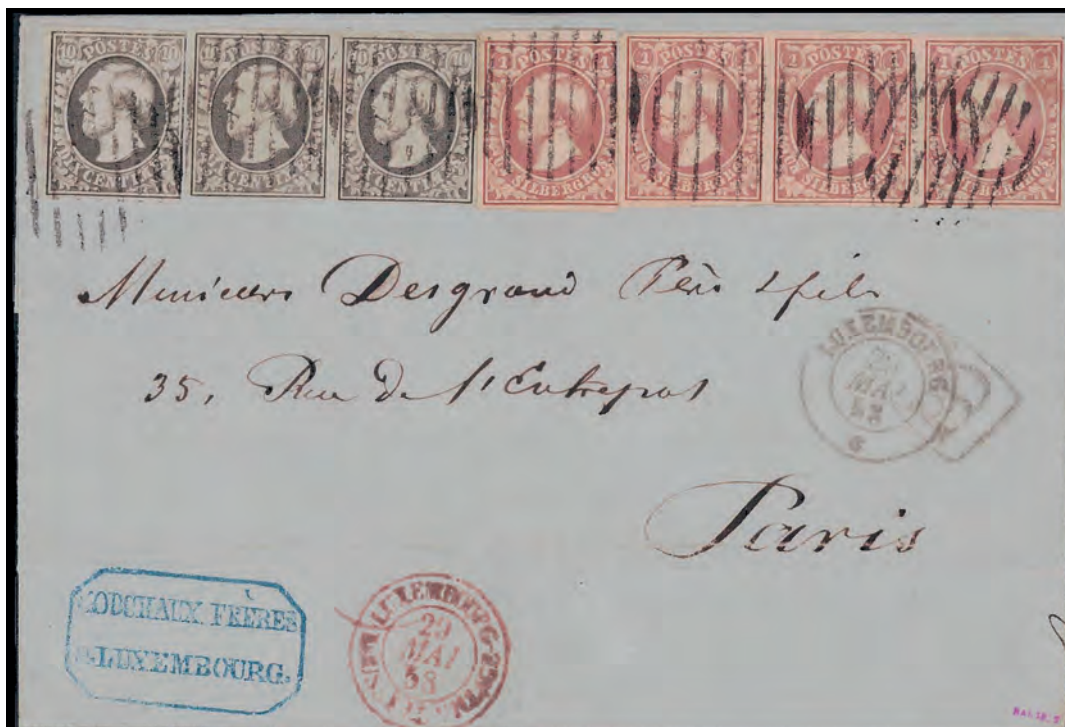 10 POSTES 10
CENTI
10 POSTES 10
CENTI
10 POSTES 10
CENTI
1 POSTES 1
SILBERGROS.
1 POSTES 1
SILBERGROS.
1 POSTES 1
SILBERGROS.
POSTES 1
SILBERGROS.
Messieurs Desgrand Père & fils
35, Rue de l'Entrepot
Paris
LUXEMBOURG
MAI
GODCHAUX FRÈRES
LUXEMBOURG.
LUXEMBOURG
29
MAI
58